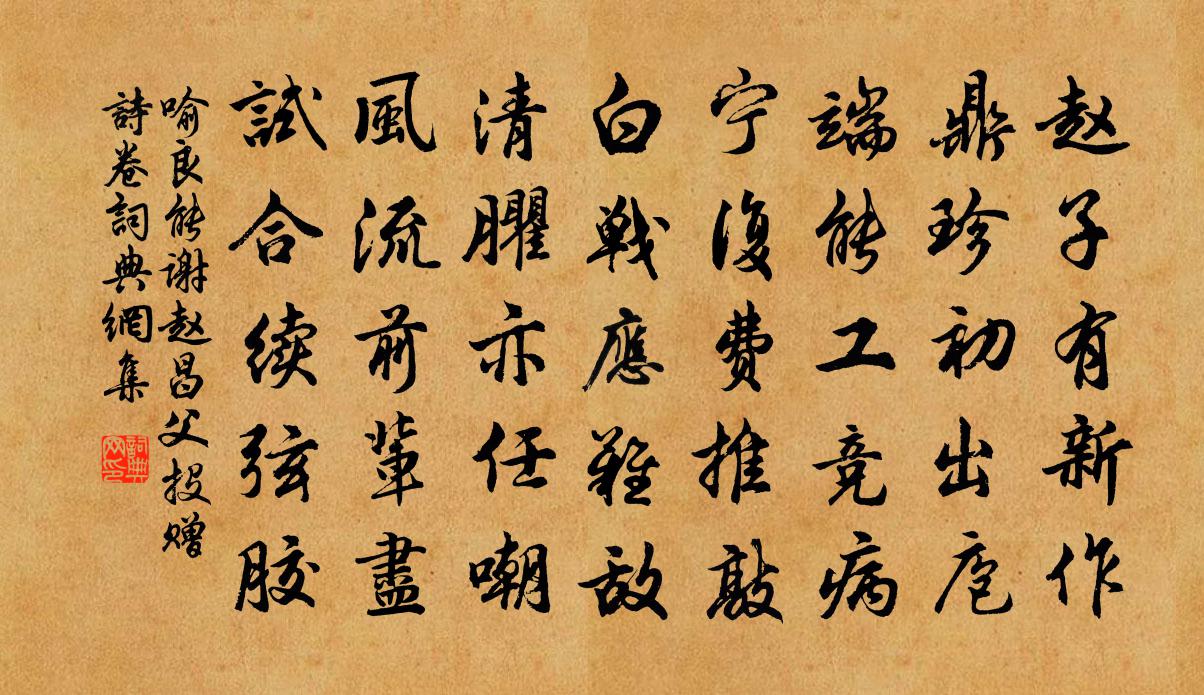 赵子有新作
鼎珍初出庖
端能工竞病
宁復费推敲
白戦應難敌
清臞亦任嘲
風流前輩盡
試合续弦胶
喻良能谢赵昌父投赠
詩卷詞典網集
詞典
网印